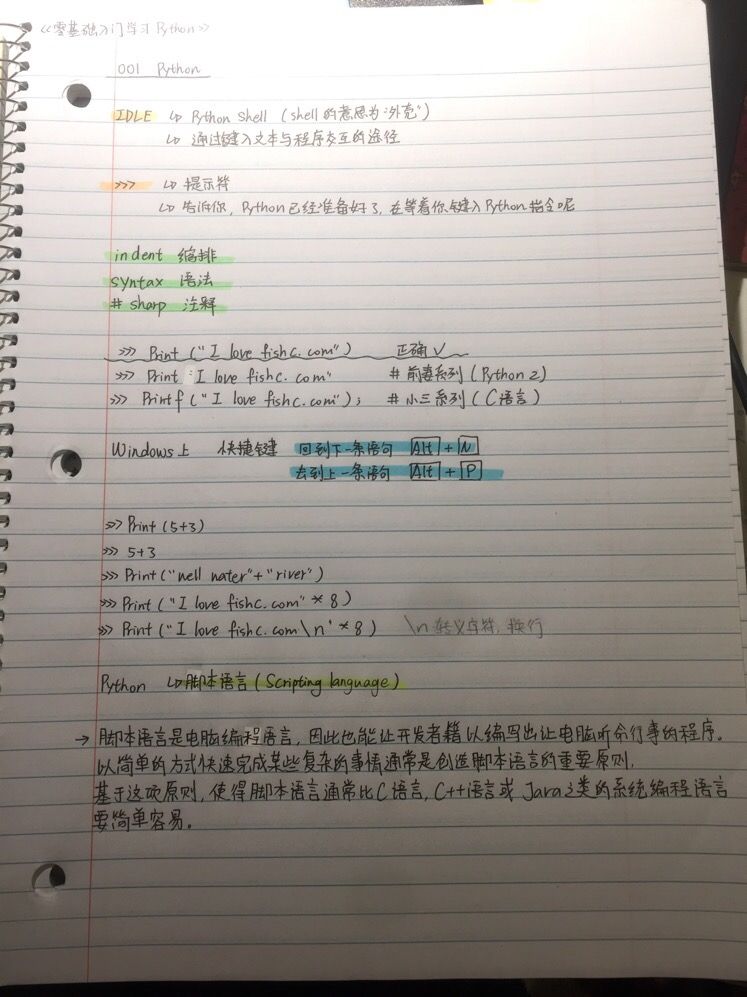 《零基础入门学习 Python》
001 Python
IDLE ↳ Python Shell (shell的意思为"外壳")
↳ 通过键入文本与程序交互的途径
>>> ↳ 提示符
↳ 告诉你, Python已经准备好了, 在等着你键入Python指令呢
indent 缩排
syntax 语法
# sharp 注释
>>> Print ("I love fishc.com") 正确 √
>>> Print "I love fishc.com" # 前妻系列 (Python 2)
>>> Printf ("I love fishc.com"); # 小三系列 (C语言)
Windows上 快捷键 回到下一条语句 Alt + N
去到上一条语句 Alt + P
>>> Print (5+3)
>>> 5+3
>>> Print ("well water"+"river")
>>> Print ("I love fishc.com" * 8)
>>> Print ("I love fishc.com\n' * 8) \n 转义字符, 换行
Python ↳ 脚本语言 (Scripting language)
→ 脚本语言是电脑编程语言, 因此也能让开发者籍以编写出让电脑听命行事的程序.
以简单的方式快速完成某些复杂的事情通常是创造脚本语言的重要原则.
基于这项原则, 使得脚本语言通常比C语言, C++语言或 Java之类的系统编程语言
要简单容易。